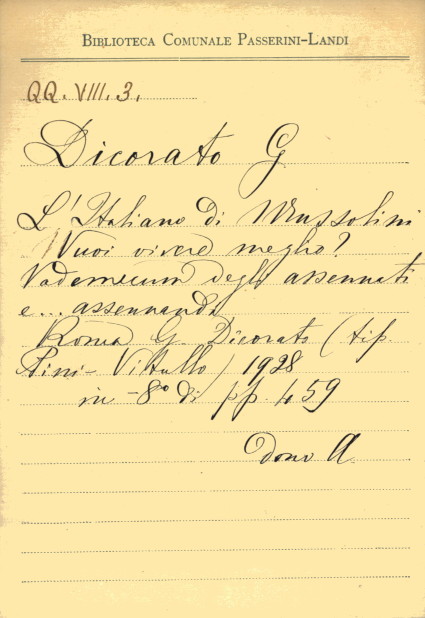 BIBLIOTECA COMUNALE PASSERINI-LANDI
QQ. VIII. 3.
Dicorato G
L'Italiano di Mussolini
Vuoi vivere meglio?
Vademecum degli assennati
e... assennandi
Roma G. Dicorato (tip.
Pini- Vittullo) 1928
in -8° di pp. 459
dono A